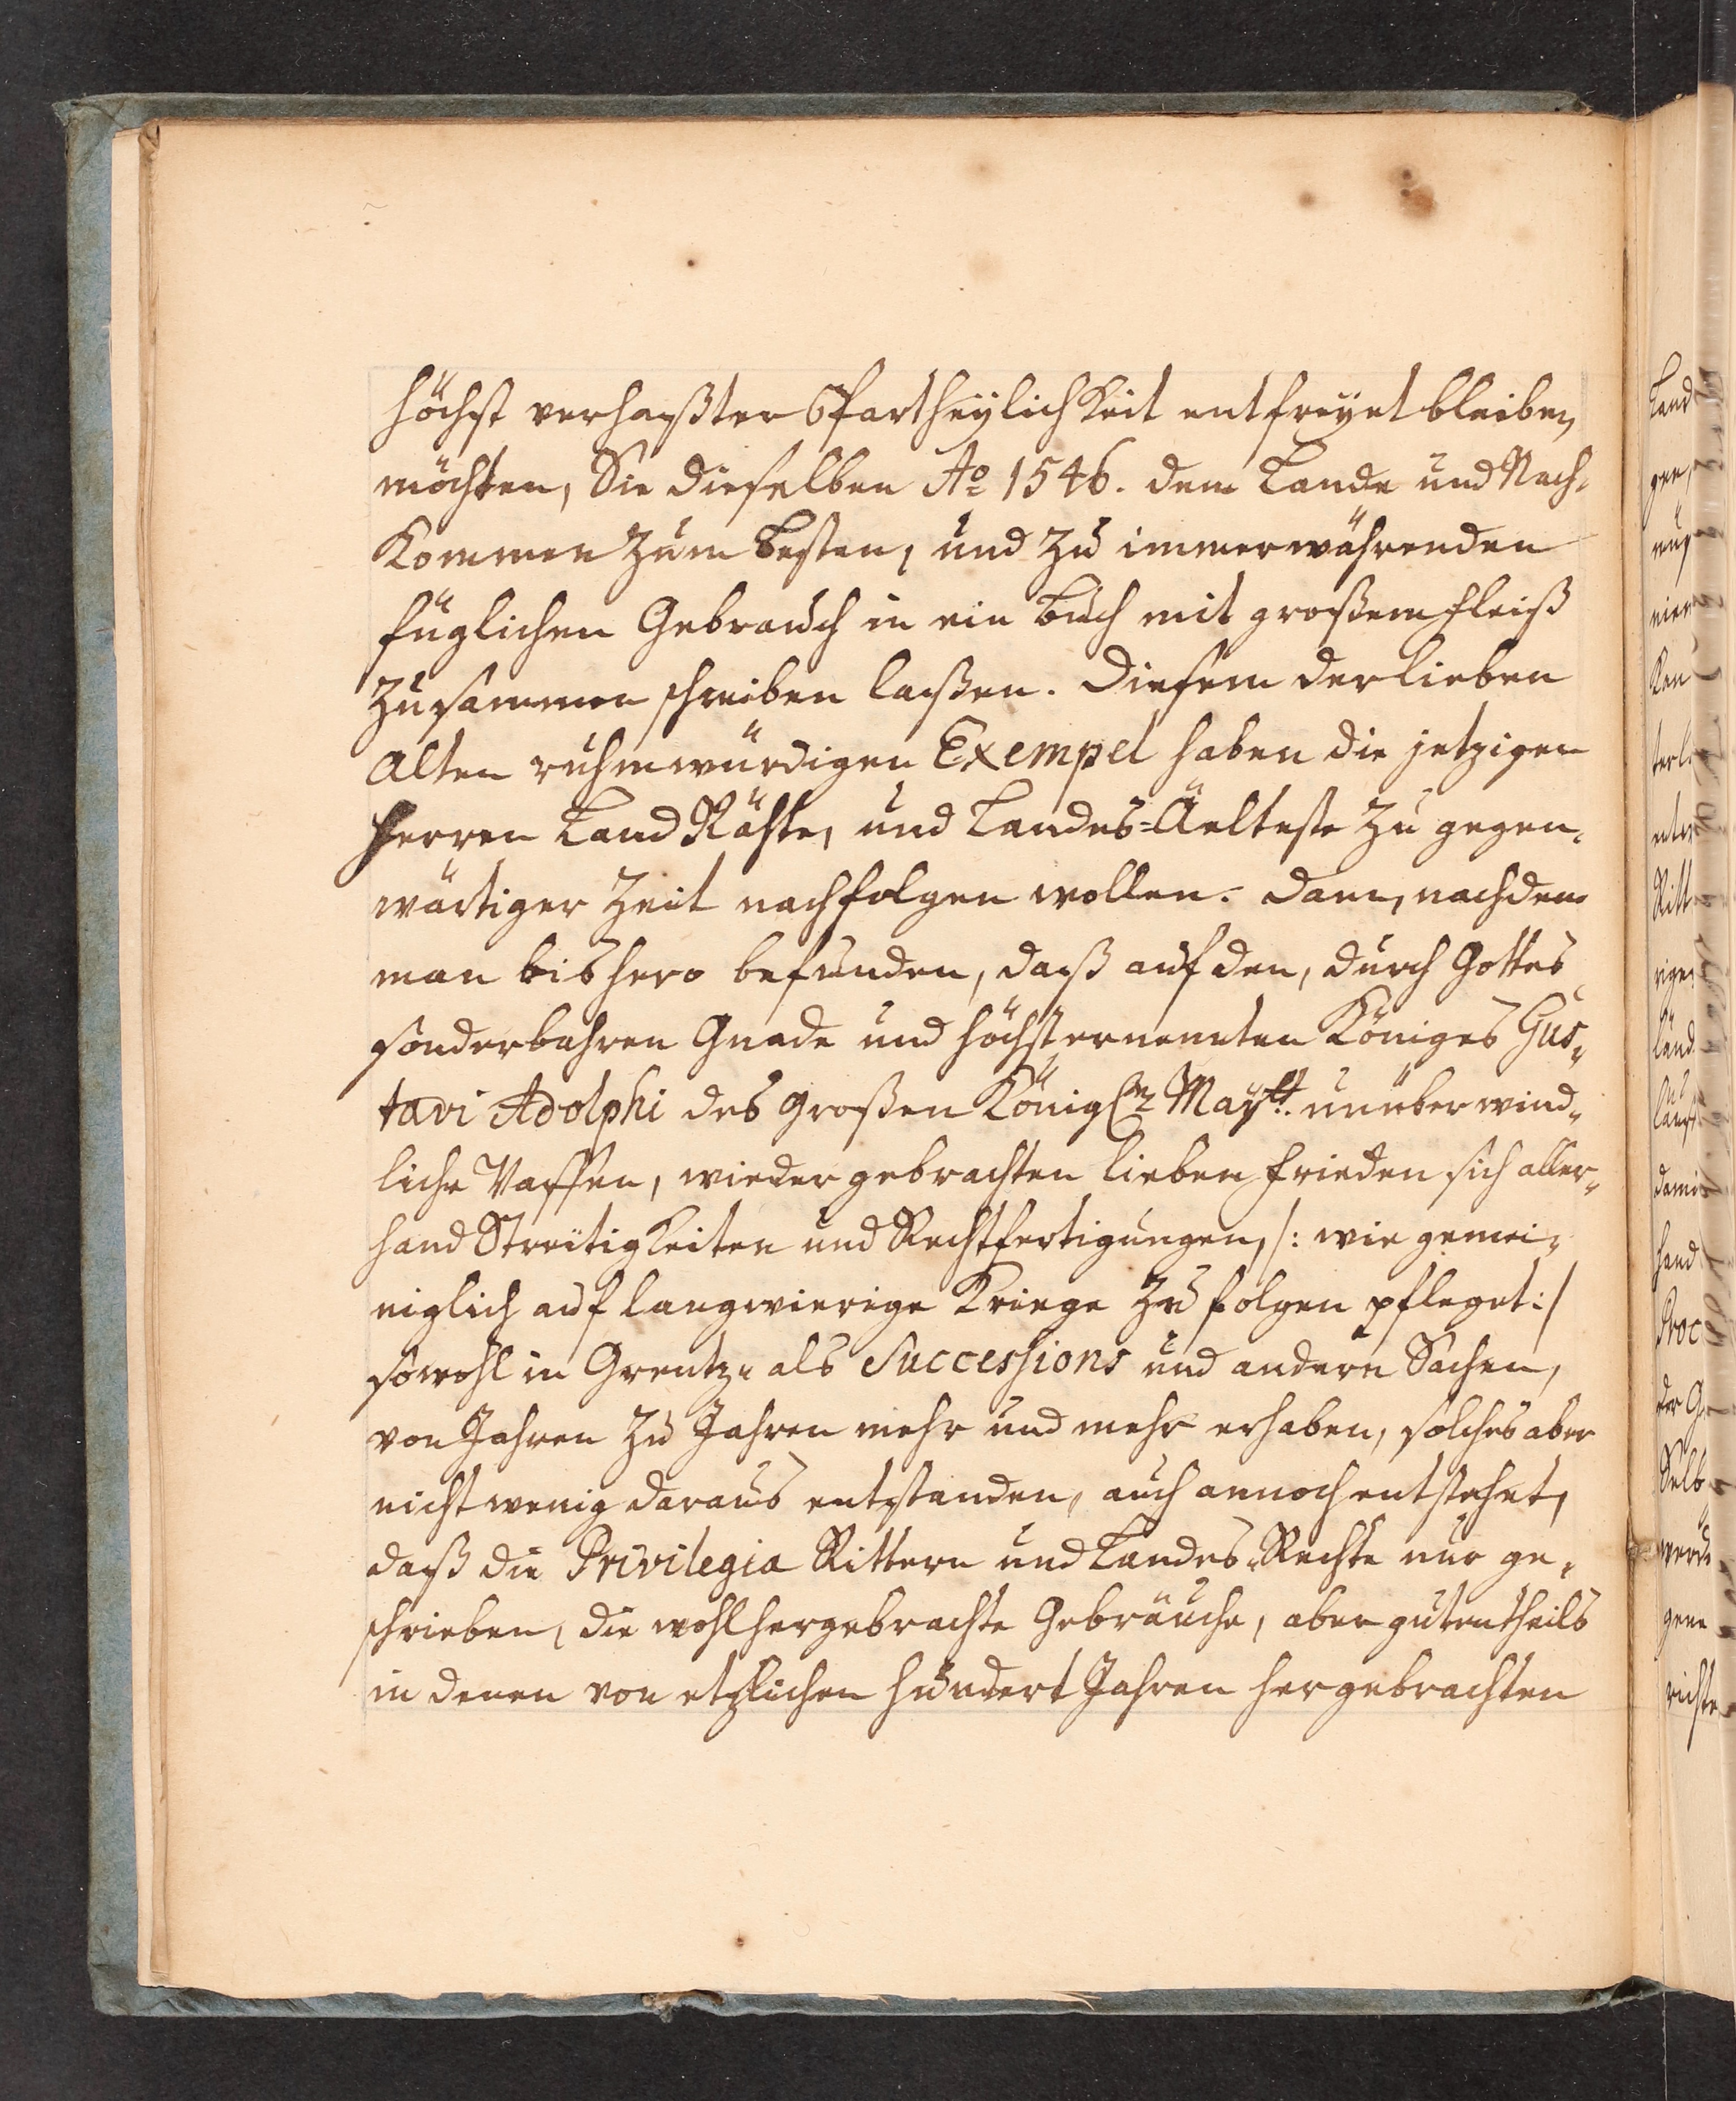 höchst verhaßter Partheylichkeit entfreyet bleiben
möchten, Sie dieselben Ao 1546. dem Lande und Nach-
kommen zum besten, und zu immerwährenden
füglichen Gebrauch in ein Buch mit großem Fleiß
zusammen schreiben laßen. Diesem der lieben
Alten ruhmwürdigen Exempel haben die jetzigen
Herren Land Räthe, und Landes=Äelteste zu gegen-
wärtiger Zeit nachfolgen wollen. Dann, nachdem
man bishero befunden, daß auf den, durch Gottes
sonderbahren Gnade und höchst ernennten Königes Gus-
tavi Adolphi des Großen Königl. Maytt. unüberwind-
liche Waffen, wieder gebrachten lieben Frieden sich aller-
hand Streitigkeiten und Rechtfertigungen, /: wie gemei-
niglich auf langwierige Kriege zu folgen pfleget :/
sowohl in Grentz- als Successions und andern Sachen,
von Jahren zu Jahren mehr und mehr erhaben, solches aber
nicht wenig daraus entstanden, auch annoch entstehet,
daß die Privilegia Rittern und Landes-Rechte nur ge-
schrieben, die wohlhergebrachte Gebräuche, aber gutentheils
in denen von etzlichen hundert Jahren hergebrachten